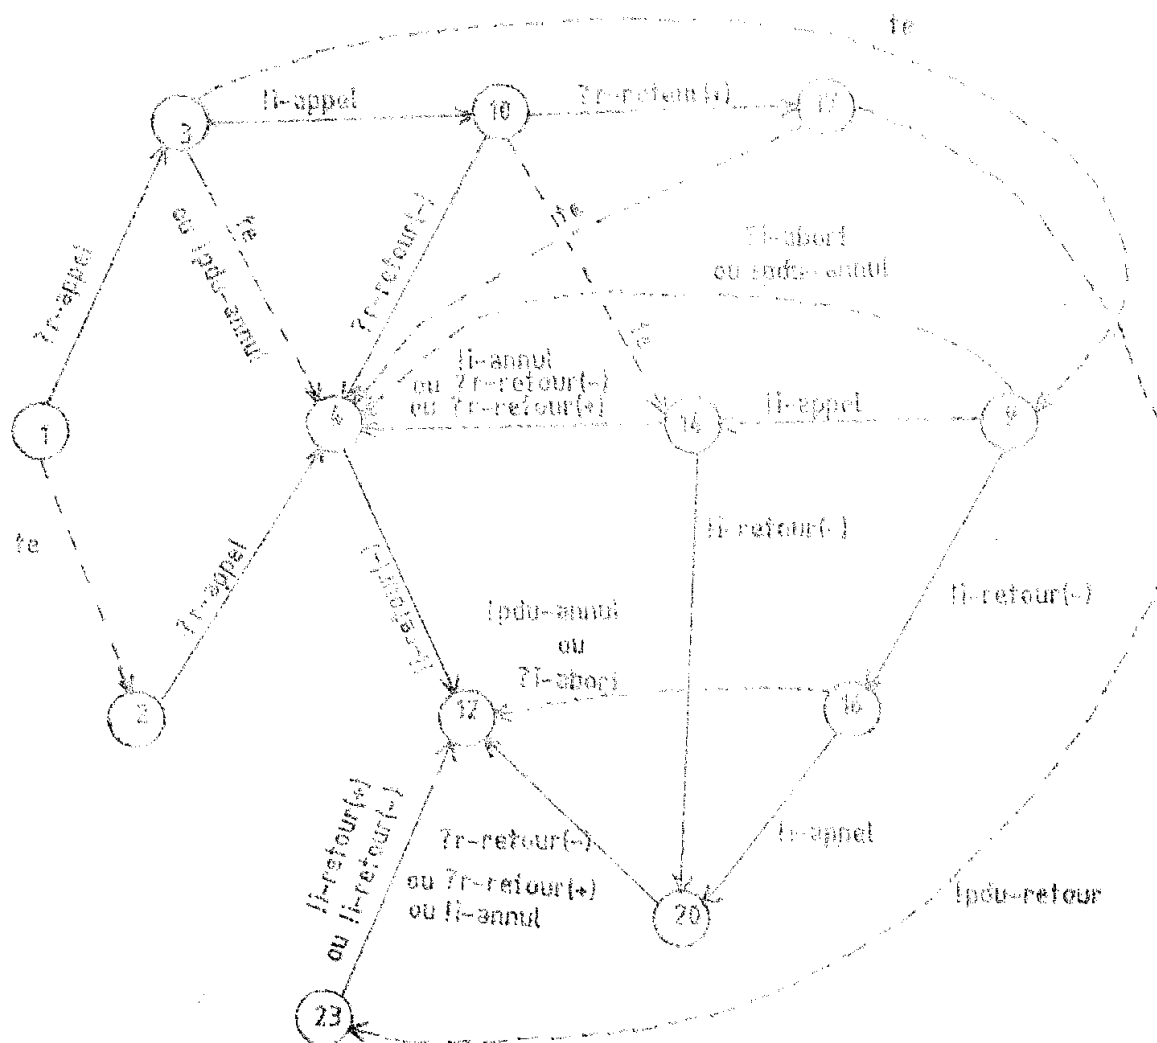 te
!i-appel
?r-retour(+)
3
10
17
?r-appel
te
ou !pdu-annul
?r-retour(-)
!te
te
?i-abort
ou !pdu-annul
!i-annul
ou ?r-retour(-)
ou ?r-retour(+)
!i-appel
1
6
14
9
te
?r-appel
!i-retour(-)
!i-retour(-)
!i-retour(-)
!pdu-annul
ou
?i-abort
2
12
16
!i-retour(+)
ou !i-retour(-)
?r-retour(-)
ou ?r-retour(+)
ou !i-annul
!i-appel
!pdu-retour
20
23